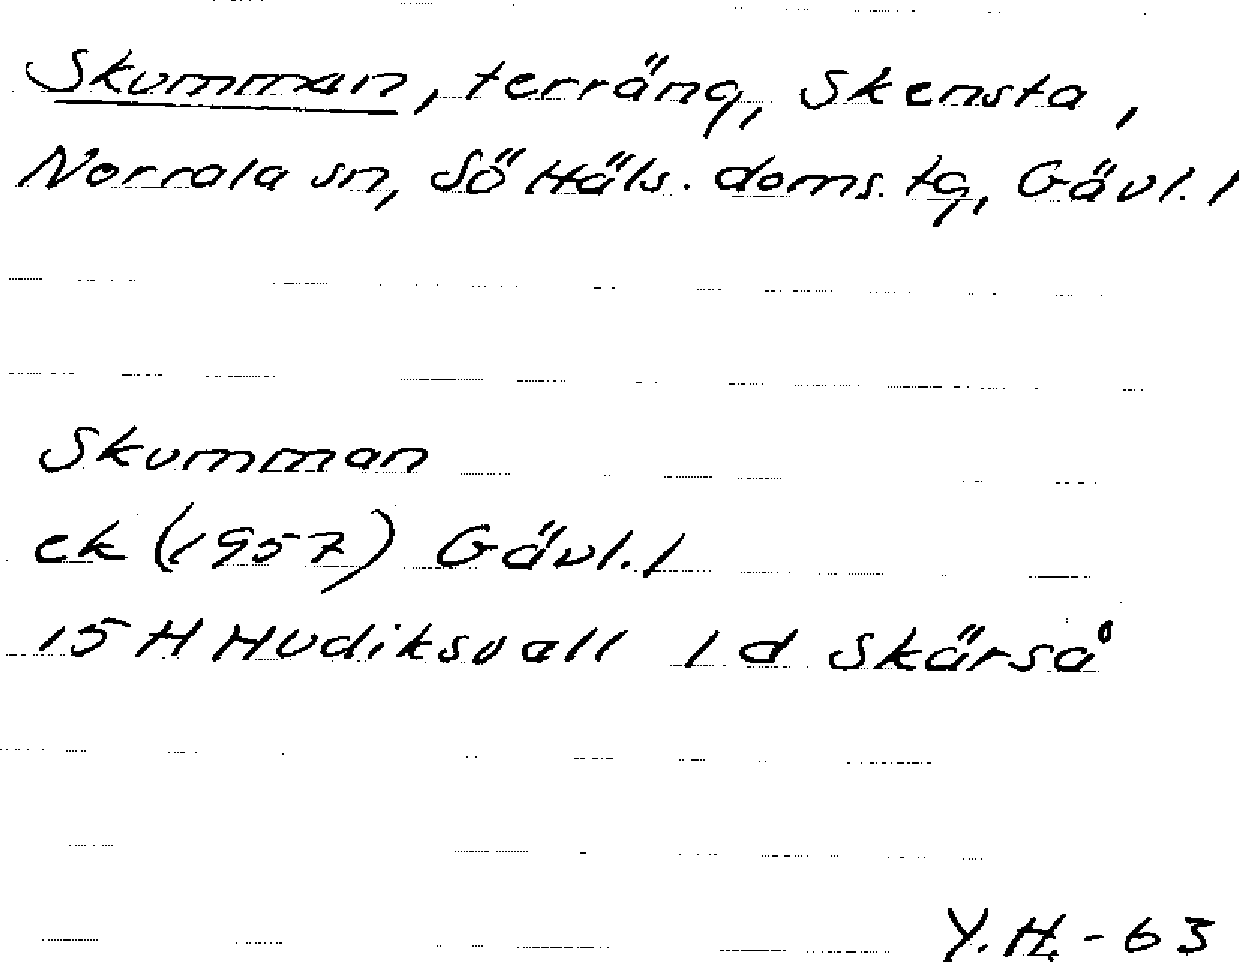 Skumman, terräng, Skensta,
Norrala sn, Sö Häls. doms. tg, Gävl. l
Skumman
ek (1957) Gävl. l
15 H Hudiksvall 1 d Skärså
Y.H. - 63